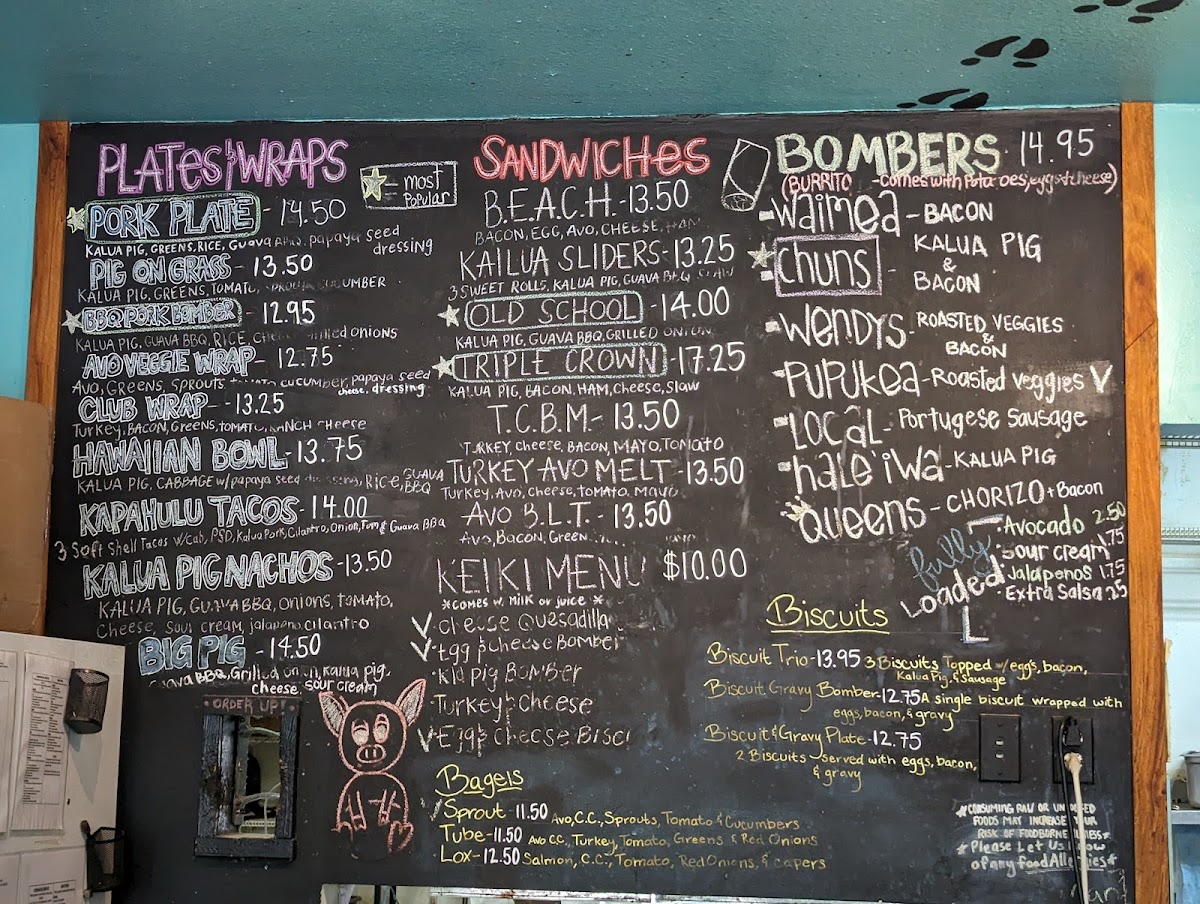 PLATES & WRAPS
- most
Popular
PORK PLATE - 14.50
KALUA PIG, GREENS, RICE, GUAVA BBQ, papaya seed
dressing
PIG ON GRASS - 13.50
KALUA PIG, GREENS, TOMATO, SPROUTS, CUCUMBER
BBQ PORK BOMBER - 12.95
KALUA PIG, GUAVA BBQ, RICE, Cheese, grilled onions
AVO VEGGIE WRAP - 12.75
AVO, GREENS, SPROUTS, TOMATO, CUCUMBER, papaya seed
cheese, dressing
CLUB WRAP - 13.25
Turkey, BACON, GREENS, TOMATO, RANCH CHEESE
HAWAIIAN BOWL - 13.75
KALUA PIG, CABBAGE w/ papaya seed dressing, Rice, GUAVA
BBQ
KAPAHULU TACOS - 14.00
3 Soft Shell Tacos w/Cab, PSD, Kalua Pork, Cilantro, Onion, & Guava BBQ
KALUA PIG NACHOS - 13.50
KALUA PIG, GUAVA BBQ, ONIONS, TOMATO,
Cheese, Sour cream, jalapeno, cilantro
BIG PIG - 14.50
Guava BBQ, Grilled onion, Kalua pig,
cheese, sour cream
ORDER UP!
SANDWICHES
B.E.A.C.H. - 13.50
BACON, EGG, AVO, CHEESE, HAM
KAILUA SLIDERS - 13.25
3 SWEET ROLLS, KALUA PIG, GUAVA BBQ, SLAW
OLD SCHOOL - 14.00
KALUA PIG, GUAVA BBQ, GRILLED ONION
TRIPLE CROWN - 17.25
KALUA PIG, BACON, HAM, Cheese, SLAW
T.C.B.M - 13.50
TURKEY, Cheese, BACON, MAYO, TOMATO
TURKEY AVO MELT - 13.50
Turkey, Avo, cheese, tomato, Mayo
AVO B.L.T. - 13.50
Avo, Bacon, Green
KEIKI MENU $10.00
*COMES W. MILK or juice *
✓ cheese Quesadilla
✓ Egg & cheese BOMBER
- Kid pig BOMBER
- Turkey & cheese
✓ Egg & cheese Bisc
Bagels
✓ Sprout - 11.50 Avo, C.C., Sprouts, Tomato & Cucumbers
Tube - 11.50 Avo C.C., Turkey, Tomato, Greens & Red Onions
Lox - 12.50 Salmon, C.C., Tomato, Red Onions, & capers
BOMBERS 14.95
(BURRITO - comes with Potatoes, eggs & cheese)
- Waimea - BACON
- Chuns - KALUA PIG
&
BACON
- Wendys - ROASTED VEGGIES
&
BACON
- Pupukea - Roasted veggies V
- Local - Portugese Sausage
- hale'iwa - KALUA PIG
- Queens - CHORIZO + Bacon
fully
Loaded
· Avocado 2.50
· Sour cream 1.75
· Jalapenos 1.75
· Extra Salsa .25
Biscuits
Biscuit Trio - 13.95 3 Biscuits Topped w/ eggs, bacon,
Kalua Pig, & Sausage
Biscuit Gravy Bomber - 12.75 A single biscuit wrapped with
eggs, bacon, & gravy
Biscuit & Gravy Plate - 12.75
2 Biscuits served with eggs, bacon,
& gravy
*CONSUMING RAW OR
FOODS MAY INCREASE YOUR
RISK OF FOODBORNE
*Please Let Us Know
of any food Allergies*